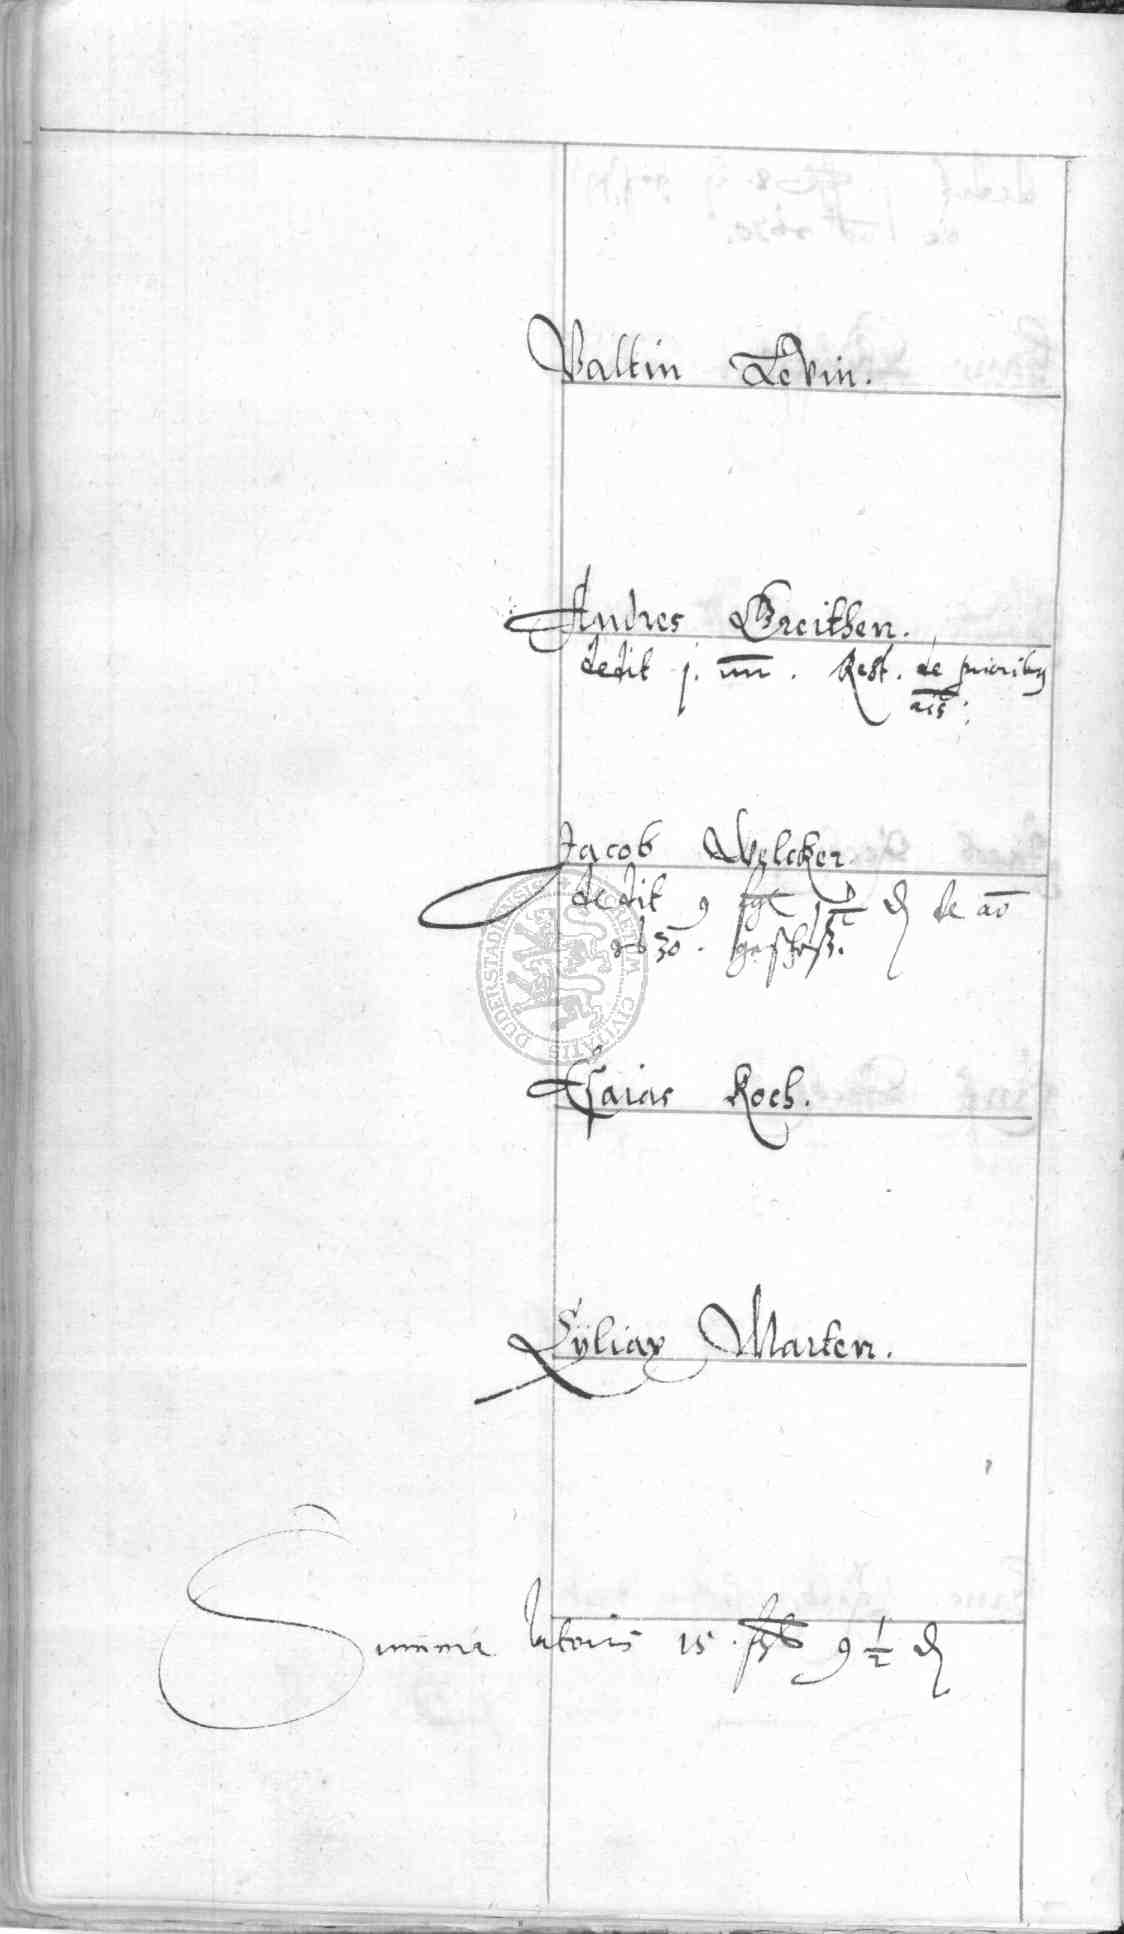 Valtin Levin.
Andres Greithen.
dedit j. mr. Rest. de prioribus
ais:
Jacob Welcker.
dedit 9 ßgl ½ ₰ de ao
1630. geschoß.
Esaias Koch.
Cyliax Marten.
Summa lateris 15. ßgl 9 ½ ₰
DUDERSTADIENSIS
SECRETUM CIVITATIS